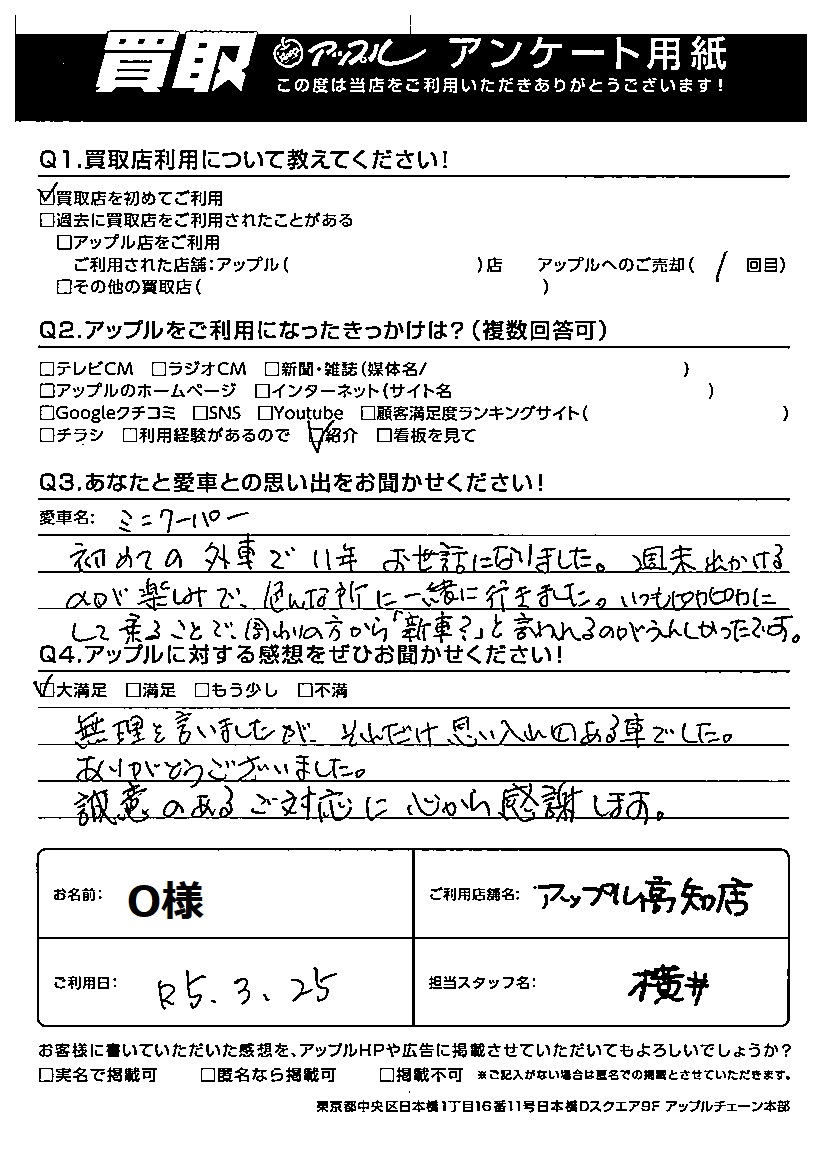 買取 アップル アンケート用紙
この度は当店をご利用いただきありがとうございます!
Q1.買取店利用について教えてください!
☑買取店を初めてご利用
□過去に買取店をご利用されたことがある
□アップル店をご利用
ご利用された店舗:アップル( )店 アップルへのご売却( / 回目)
□その他の買取店( )
Q2.アップルをご利用になったきっかけは?(複数回答可)
□テレビCM □ラジオCM □新聞・雑誌(媒体名/ )
□アップルのホームページ □インターネット(サイト名 )
□Googleクチコミ □SNS □Youtube □顧客満足度ランキングサイト( )
□チラシ □利用経験があるので ☑紹介 □看板を見て
Q3.あなたと愛車との思い出をお聞かせください!
愛車名: ミニクーパー
初めての外車で11年お世話になりました。週末出かける
のが楽しみで、色んな所に一緒に行きました。いつもピカピカに
して乗ることで、周りの方から「新車?」と言われるのがうれしかったです。
Q4.アップルに対する感想をぜひお聞かせください!
☑大満足 □満足 □もう少し □不満
無理を言いましたが、それだけ思い入れのある車でした。
ありがとうございました。
誠意のあるご対応に心から感謝します。
お名前: O様 ご利用店舗名: アップル高知店
ご利用日: R5.3.25 担当スタッフ名: 横井
お客様に書いていただいた感想を、アップルHPや広告に掲載させていただいてもよろしいでしょうか?
□実名で掲載可 □匿名なら掲載可 □掲載不可 ※ご記入がない場合は匿名での掲載とさせていただきます。
東京都中央区日本橋1丁目16番11号日本橋Dスクエア9F アップルチェーン本部